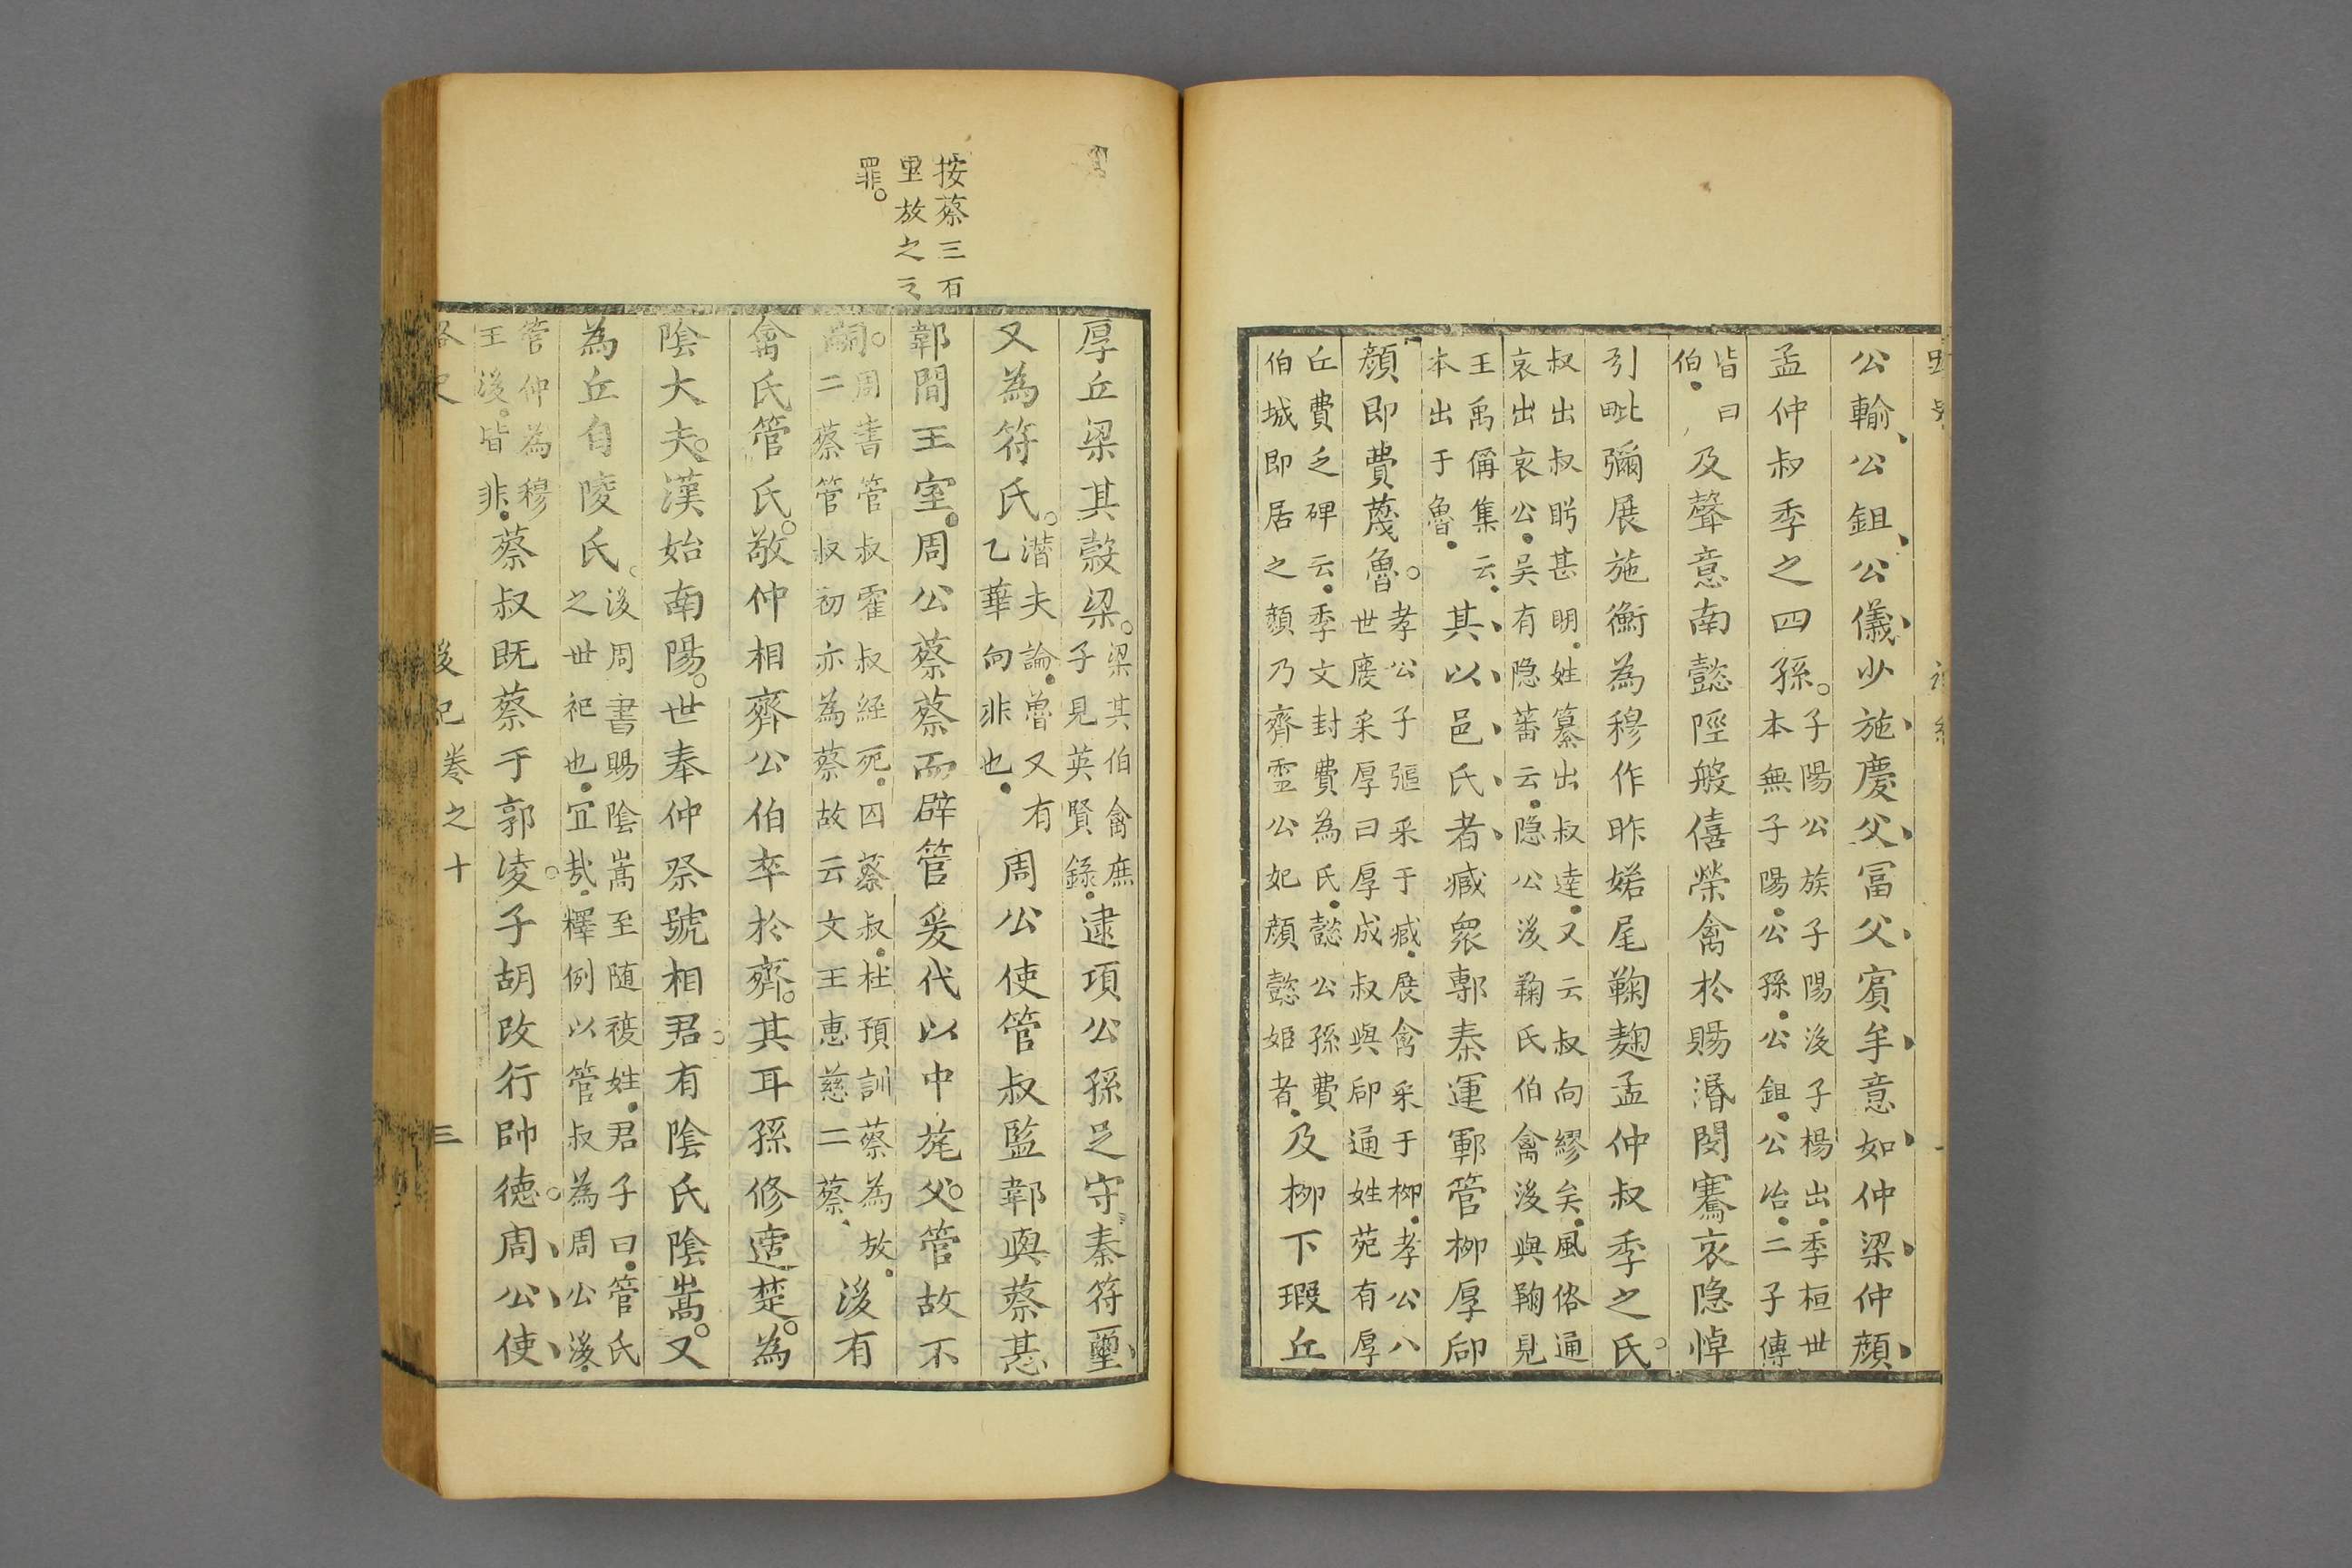 公輸公鉏公儀少施慶父冨父賔牟意如仲梁仲顔
孟仲叔季之四孫子陽公族子陽後子楊出季桓世
本無子陽公孫公鉏公冶二子傳
皆曰
伯
及聲意南懿陘般僖榮禽於賜湣閔騫哀隐悼
引毗彌展施衡為穆作昨婼尾鞠麹孟仲叔季之氏
叔出叔肸甚明姓纂出叔逹又云叔向繆矣風俗通
哀出哀公吴有隐蕃云隐公後鞠氏伯禽後與鞠見
王禹偁集云
本出于魯
其以邑氏者臧衆鄟秦運鄆管柳厚郈
顔即費蔑魯
孝公子彄采于臧展禽采于柳孝公八
世廋采厚曰厚成叔與郈通姓苑有厚
丘費之碑云季文封費為氏懿公孫費
伯城即居之顔乃齊霊公妃顔懿姬者
及柳下瑕丘
厚丘梁其穀梁
梁其伯禽庶
子見英賢錄
逮項公孫足守秦符璽
又為符氏
潜夫論魯又有
乙華向非也
周公使管叔監鄣與蔡甚
鄣間王室周公蔡蔡而辟管爰代以中旄父管故不
嗣
周書管叔霍叔経死囚蔡叔杜預訓蔡為放
二蔡管叔初亦為蔡故云文王惠慈二蔡
後有
禽氏管氏敬仲相齊公伯卒於齊其耳孫修適楚為
陰大夫漢始南陽世奉仲祭號相君有陰氏陰嵩又
為丘自陵氏
後周書賜陰嵩至随複姓君子曰管氏
之世祀也冝㢤釋例以管叔為周公後
管仲為穆
王後皆非
蔡叔既蔡于郭凌子胡改行帥徳周公使
後紀卷之十
三
按蔡三石
里放之之
罪